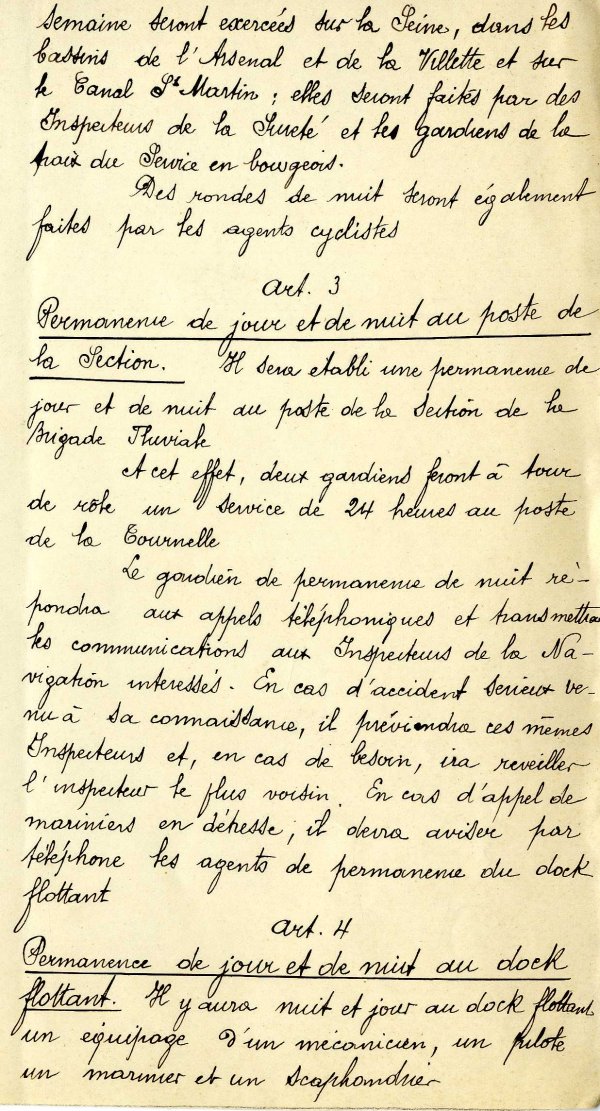 semaine seront exercées sur la Seine, dans les
bassins de l'Arsenal et de la Villette et sur
le Canal St Martin ; elles seront faites par des
Inspecteurs de la Sureté et les gardiens de la
paix du Service en bourgeois.
Des rondes de nuit seront également
faites par les agents cyclistes
Art. 3
Permanence de jour et de nuit au poste de
la Section. Il sera etabli une permanence de
jour et de nuit au poste de la Section de la
Brigade Fluviale
A cet effet, deux gardiens feront à tour
de rôle un service de 24 heures au poste
de la Tournelle
Le gardien de permanence de nuit ré-
pondra aux appels téléphoniques et transmettra
les communications aux Inspecteurs de la Na-
vigation interessés. En cas d'accident serieux ve-
nu à sa connaissance, il préviendra ces mêmes
Inspecteurs et, en cas de besoin, ira reveiller
l'inspecteur le plus voisin. En cas d'appel de
mariniers en détresse, il devra aviser par
téléphone les agents de permanence du dock
flottant
Art. 4
Permanence de jour et de nuit au dock
flottant. Il y aura nuit et jour au dock flottant
un équipage d'un mécanicien, un pilote
un marinier et un scaphandrier